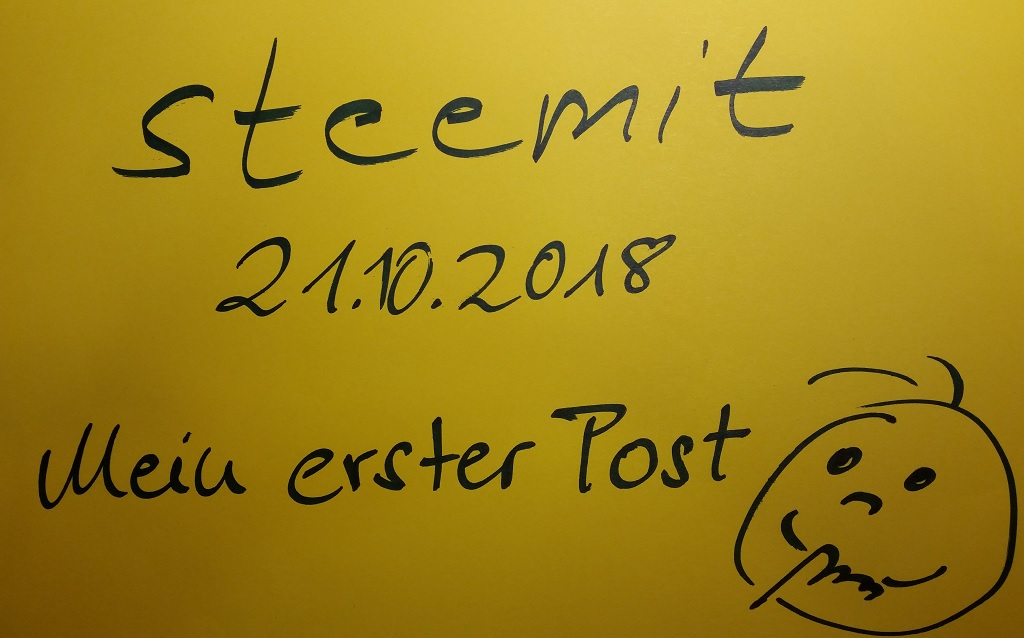 steemit
21.10.2018
Mein erster Post